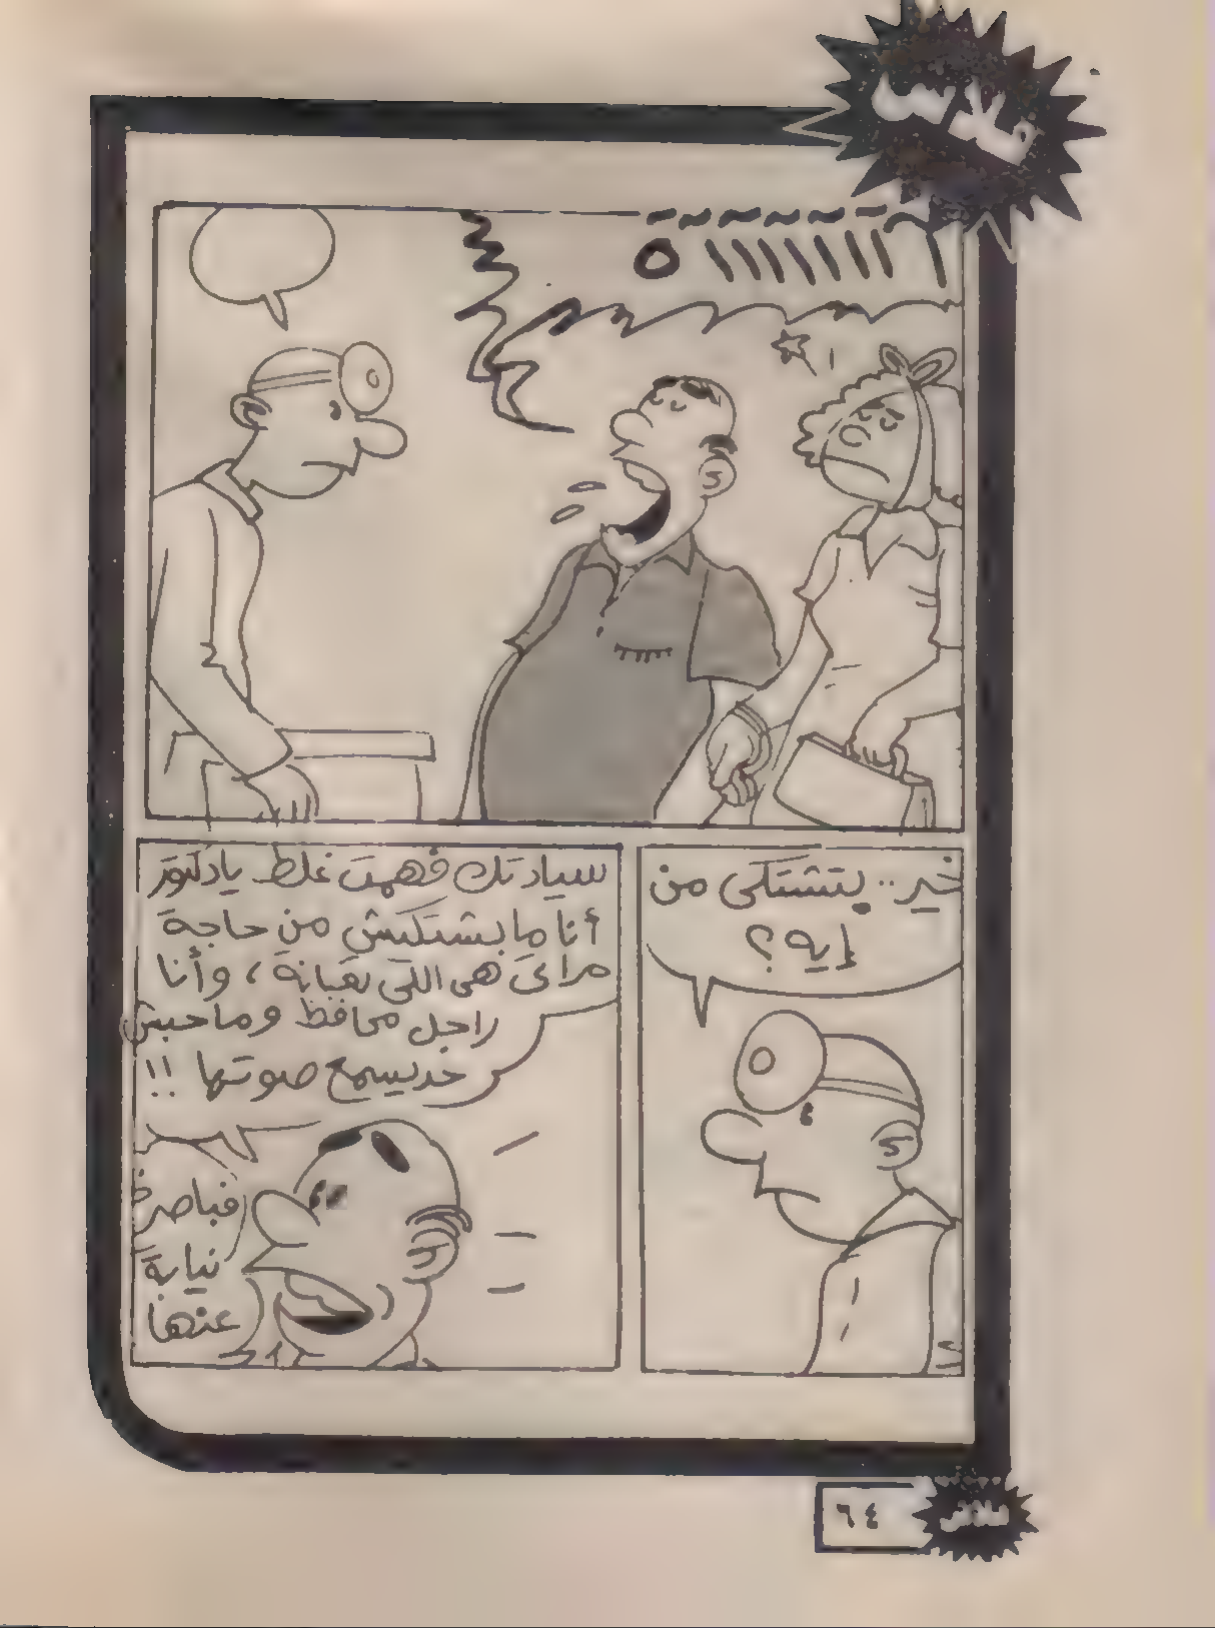 فلاش
خير.. بتشتكى من
إيه؟
سيادتك فهمت غلط يا دكتور
أنا ما بشتكيش من حاجة
مراتى هى اللى تعبانة، وأنا
راجل محافظ وماحبش
حد يسمع صوتها !!
فباصرخ
نيابة
عنها
٦٤
فلاش